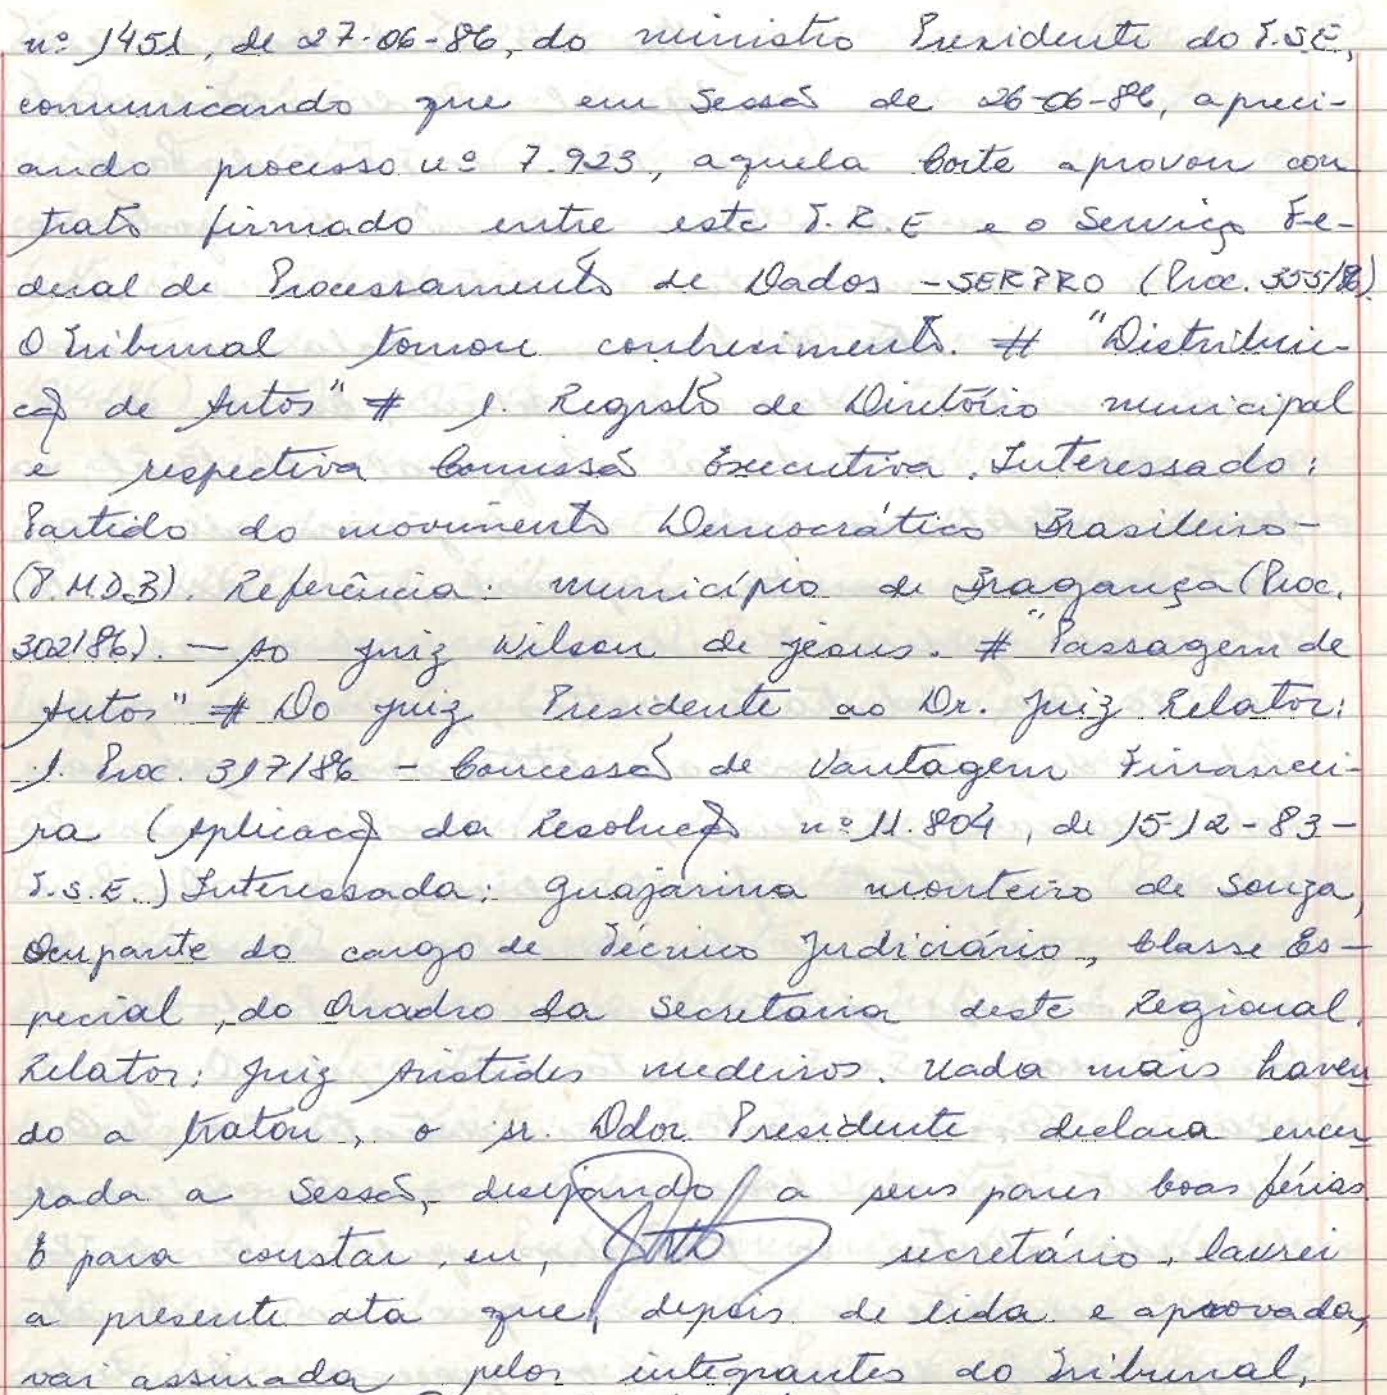 nº 1451, de 27-06-86, do ministro Presidente do T.S.E,
comunicando que em Sessão de 26-06-86, apreci-
ando processo nº 7.923, aquela Corte aprovou con
trato firmado entre este T.R.E e o Serviço Fe-
deral de Processamento de Dados - SERPRO (Proc. 355/86).
O Tribunal tomou conhecimento. # "Distribui-
ção de Autos" # 1. Registo de Diretório municipal
e respectiva Comissão Executiva. Interessado:
Partido do movimento Democrático Brasileiro -
(P.M.D.B). Referência: município de Bragança (Proc.
302/86). — Ao juiz Wilson de jesus. # "Passagem de
Autos" # Do juiz Presidente ao Dr. Juiz Relator:
1. Proc. 317/86 - Concessão de Vantagem Financei-
ra (Aplicação da Resolução nº 11.804, de 15-12-83 -
T.S.E.) Interessada: Guajarina monteiro de Souza,
Ocupante do cargo de Técnico Judiciário, Classe Es-
pecial, do Quadro da Secretaria deste Regional.
Relator: Juiz Aristides medeiros. Nada mais haven
do a tratar, o sr. Ddor Presidente declara encer
rada a Sessão, desejando a seus pares boas férias
E para constar, eu, secretário, lavrei
a presente ata que, depois de lida e aprovada,
vai assinada pelos integrantes do Tribunal.